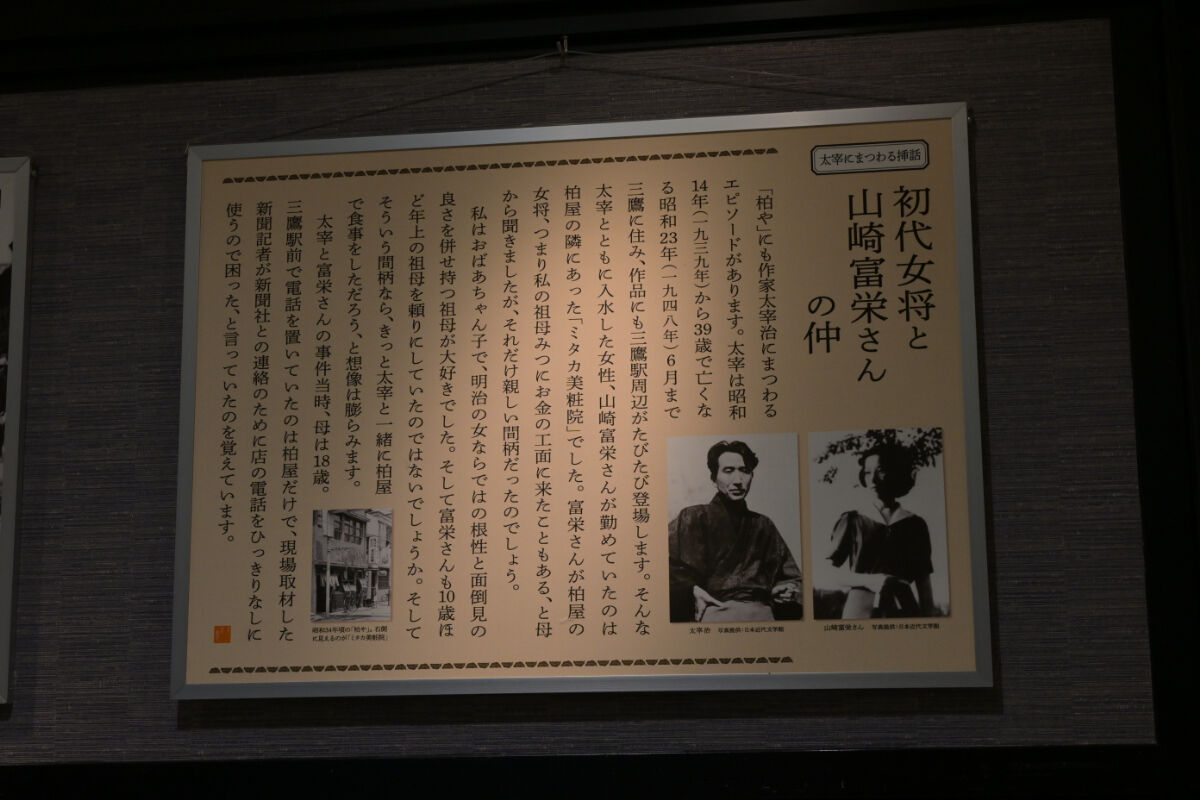 太宰にまつわる挿話
初代女将と
山崎富栄さん
の仲
「柏や」にも作家太宰治にまつわる
エピソードがあります。太宰は昭和
14年(一九三九年)から39歳で亡くな
る昭和23年(一九四八年)6月まで
三鷹に住み、作品にも三鷹駅周辺がたびたび登場します。そんな
太宰とともに入水した女性、山崎富栄さんが勤めていたのは
柏屋の隣にあった「ミタカ美粧院」でした。富栄さんが柏屋の
女将、つまり私の祖母みつにお金の工面に来たこともある、と母
から聞きましたが、それだけ親しい間柄だったのでしょう。
私はおばあちゃん子で、明治の女ならではの根性と面倒見の
良さを併せ持つ祖母が大好きでした。そして富栄さんも10歳ほ
ど年上の祖母を頼りにしていたのではないでしょうか。そして
そういう間柄なら、きっと太宰と一緒に柏屋
で食事をしただろう、と想像は膨らみます。
太宰と富栄さんの事件当時、母は18歳。
三鷹駅前で電話を置いていたのは柏屋だけで、現場取材した
新聞記者が新聞社との連絡のために店の電話をひっきりなしに
使うので困った、と言っていたのを覚えています。
山崎富栄さん 写真提供:日本近代文学館
太宰治 写真提供:日本近代文学館
昭和34年頃の「柏や」。右側
に見えるのが「ミタカ美粧院」